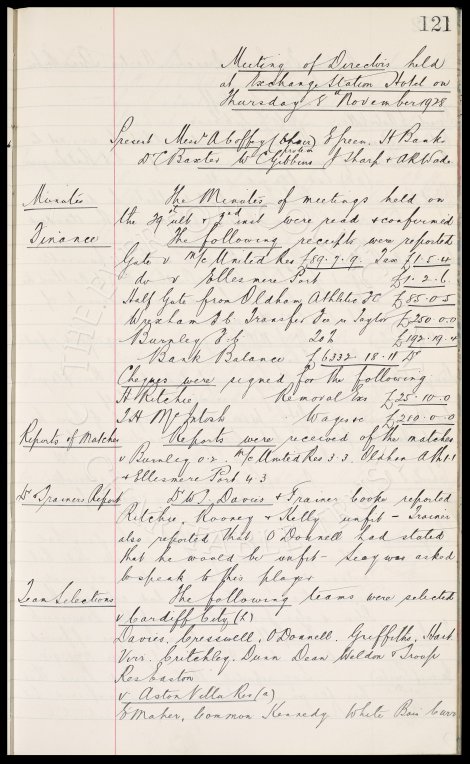 121
Meeting of Directors held
at Exchange Station Hotel on
Thursday 8th November 1928
Present Messrs A Coffey (Chair) E Green. H Banks
Dr C Baxter W C Gibbins J Sharp & A R Wade
Minutes The Minutes of meetings held on
the 29th ult & 2nd inst were read & confirmed
Finance The following receipts were reported
Gate v M/c United Res £89.7.9. Tax £1.5.4
do v Ellesmere Port £1.2.6.
Half Gate from Oldham Athletic FC £85.0.5
Wrexham F.C. Transfer Fee re Taylor £250.0.0
Burnley F.C. £192.19.4
Bank Balance £6332.18.11 Dr
Cheques were signed for the following
H Ritchie Removal &c £25.10.0
T.H McIntosh Wages &c £210.0.0
Reports of Matches Reports were received of the matches
v Burnley 0.2. M/c United Res 3.3. Oldham Ath 1.1
& Ellesmere Port 4.3
Dr & Trainers Report Dr W. J. Davies & Trainer Cooke reported
Ritchie, Rooney & Kelly unfit - Trainer
also reported that O'Donnell had stated
that he would be unfit - Secy was asked
to speak to this player
Team Selections The following teams were selected
v Cardiff City (h)
Davies, Cresswell, O'Donnell. Griffiths, Hart
Virr. Critchley, Dunn Dean Weldon & Troup
Res Easton
v Aston Villa Res (a)
Common Kennedy White Bain Curr